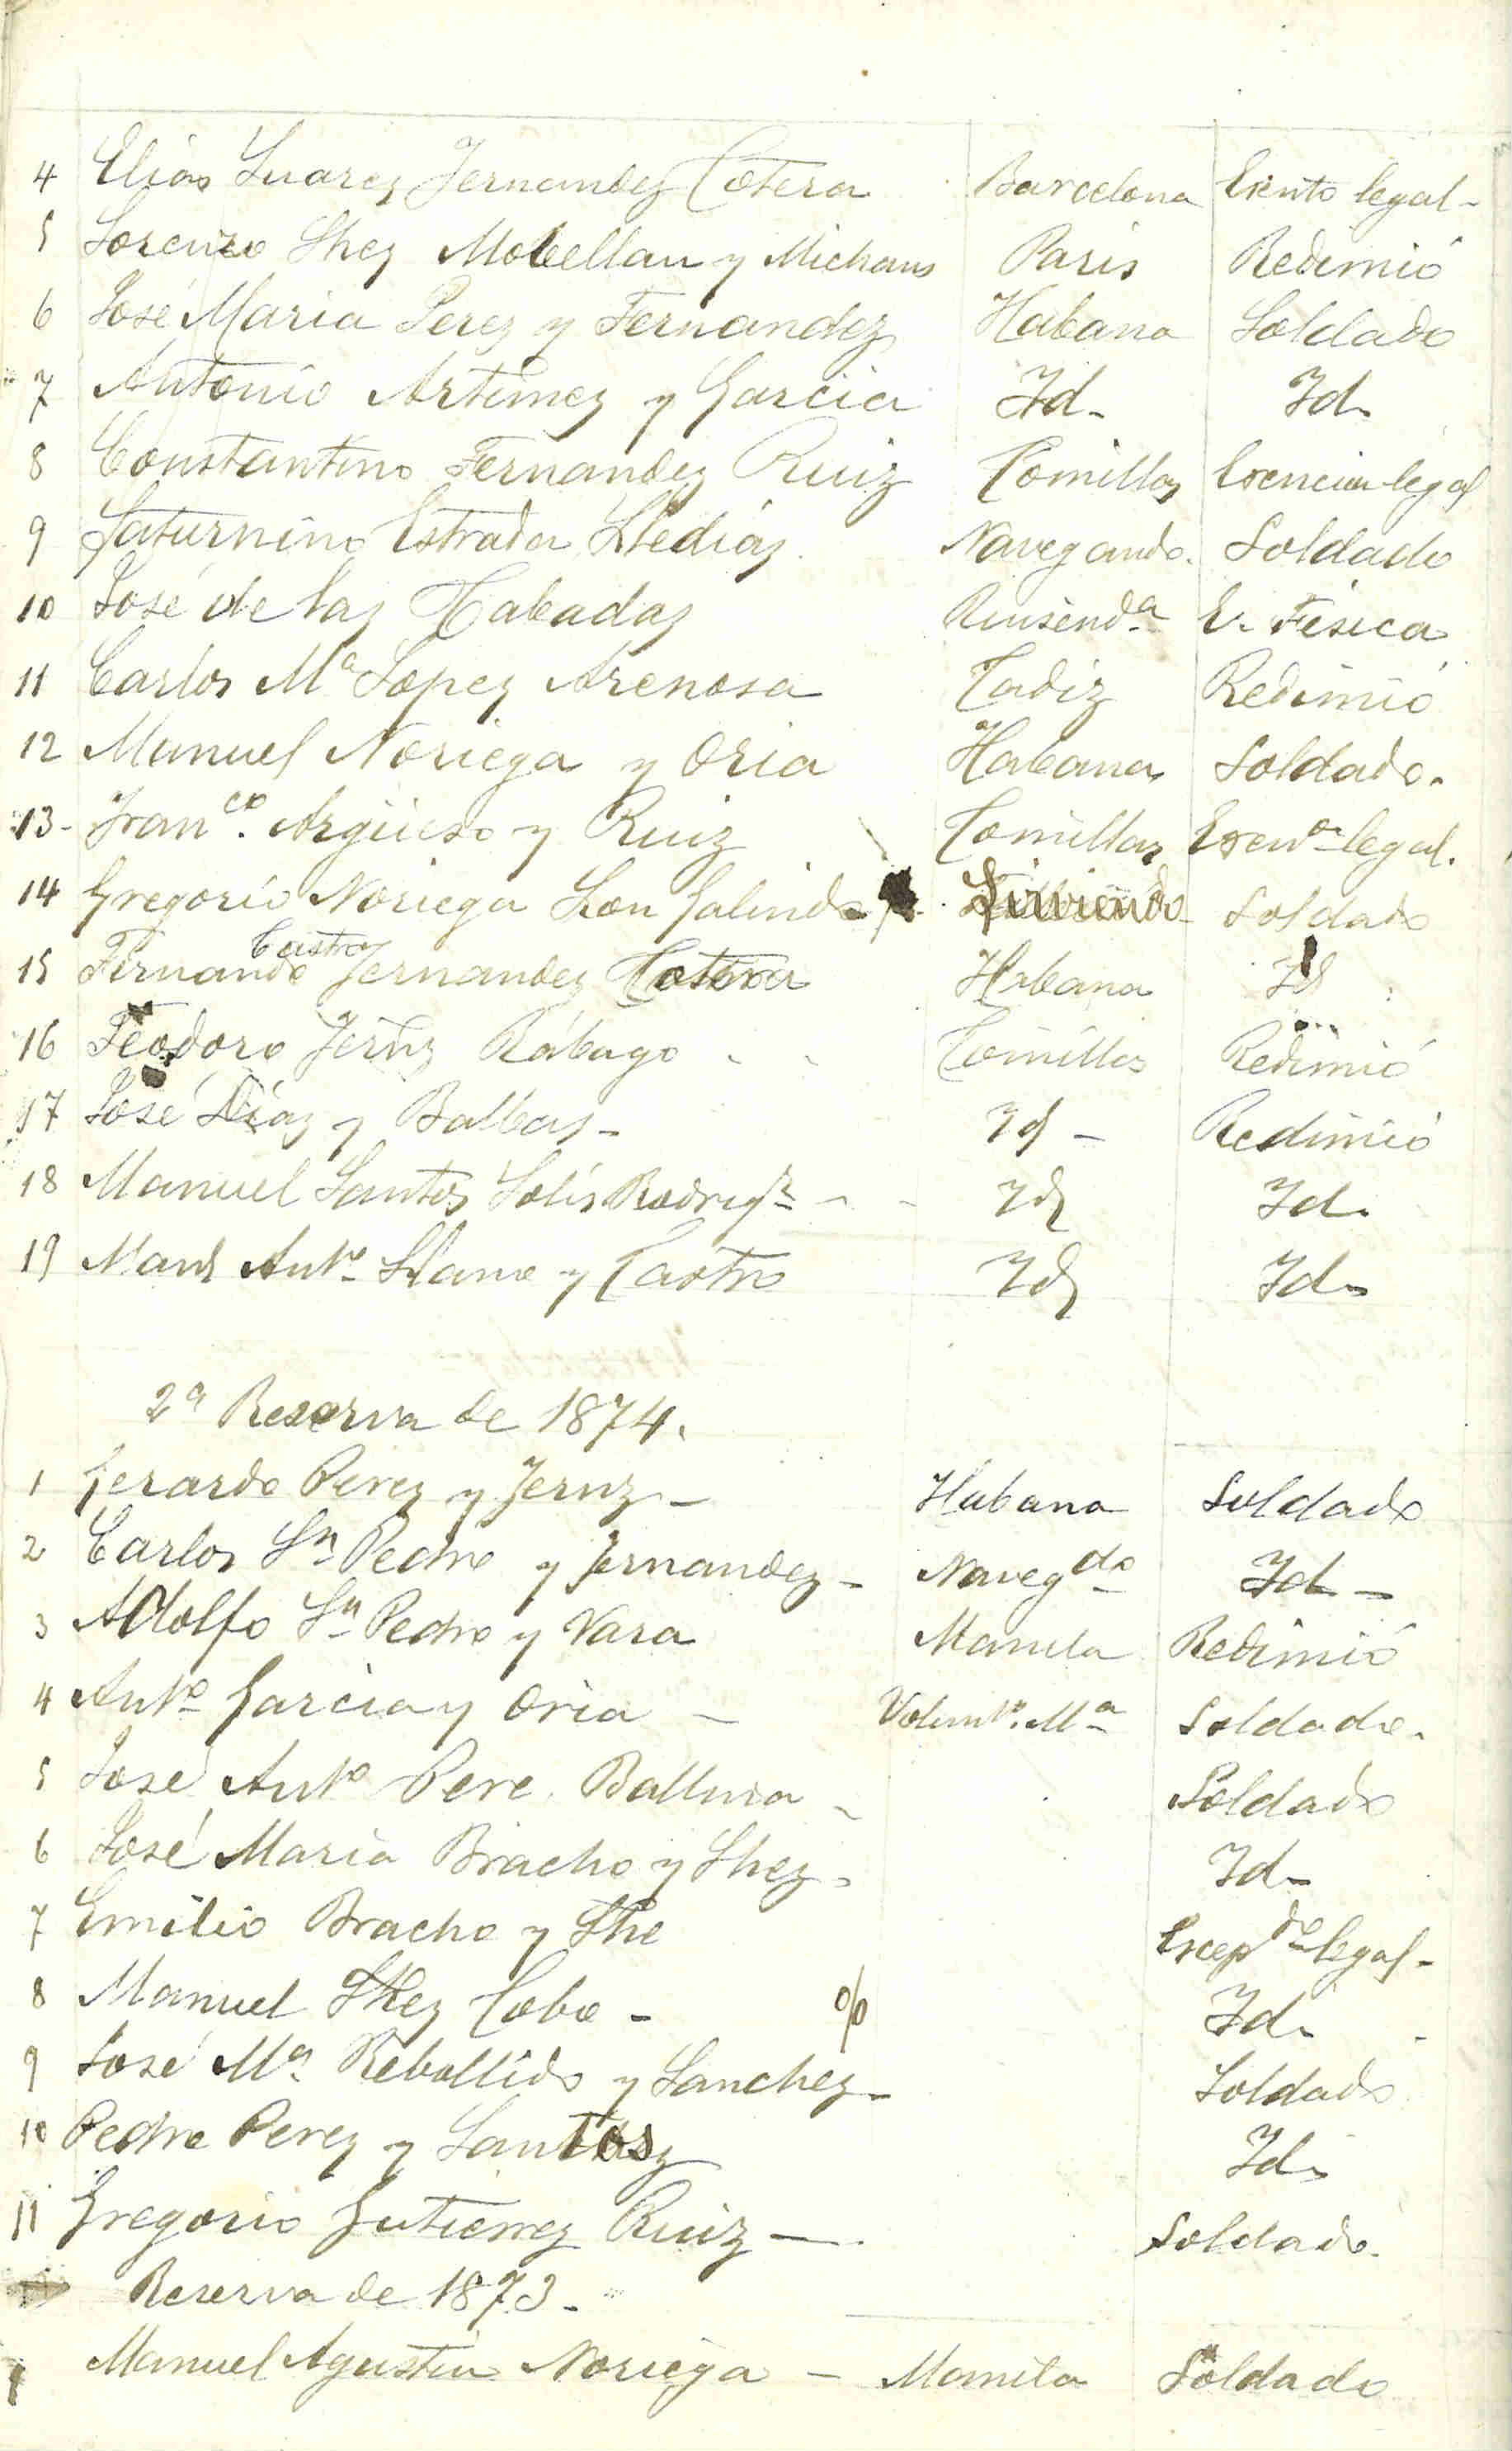 4 Elias Suarez Fernandez Cotera Barcelona Esento legal-
5 Lorenzo Shez Movellan y Michaus Paris Redimió
6 José Maria Perez y Fernandez Habana Soldado
7 Antonio Artimez y Garcia Id- Id.
8 Constantino Fernandez Ruiz Comillas Esencion legal
9 Saturnino Estrada Lledias Navegando. Soldado
10 José de las Cabadas Ruisend.ª E. Fisica
11 Carlos Mª Lopez Arenosa Cadiz Redimió
12 Manuel Noriega y Oria Habana Soldado.
13- Fran.co Argüeso y Ruiz Comillas legal.
14 Gregorio Noriega Galindo Sirviendo Soldado
15 Fernando Castro Fernandez Cotera Habana Id
16 Teodoro Fernz Rábago Comillas Redimió
17 José Diaz y Balbas- Id - Redimió
18 Manuel Santos Solis Rodrigz Id Id.
19 Manl Anto Llano y Castro Id Id.
2ª Reserva de 1874.
1 Gerardo Perez y Fernz- Habana Soldado
2 Carlos Sn Pedro y Fernandez- Navegdo Id-
3 Adolfo Sn Pedro y Vara Manila Redimió
4 Anto Garcia y Oria - Volunto. Mª Soldado.
5 José Anto Pere Soldado
6 José Maria Bracho y Shez- Id-
7 Emilio Bracho y She legal-
8 Manuel Shez Cobo - % Id.
9 José Mª Rebollido y Sanchez- Soldado
10 Pedro Perez y Santos Id.
11 Gregorio Gutierrez Ruiz - Soldado.
Reserva de 1873.
1 Manuel Agustin Noriega - Manila Soldado